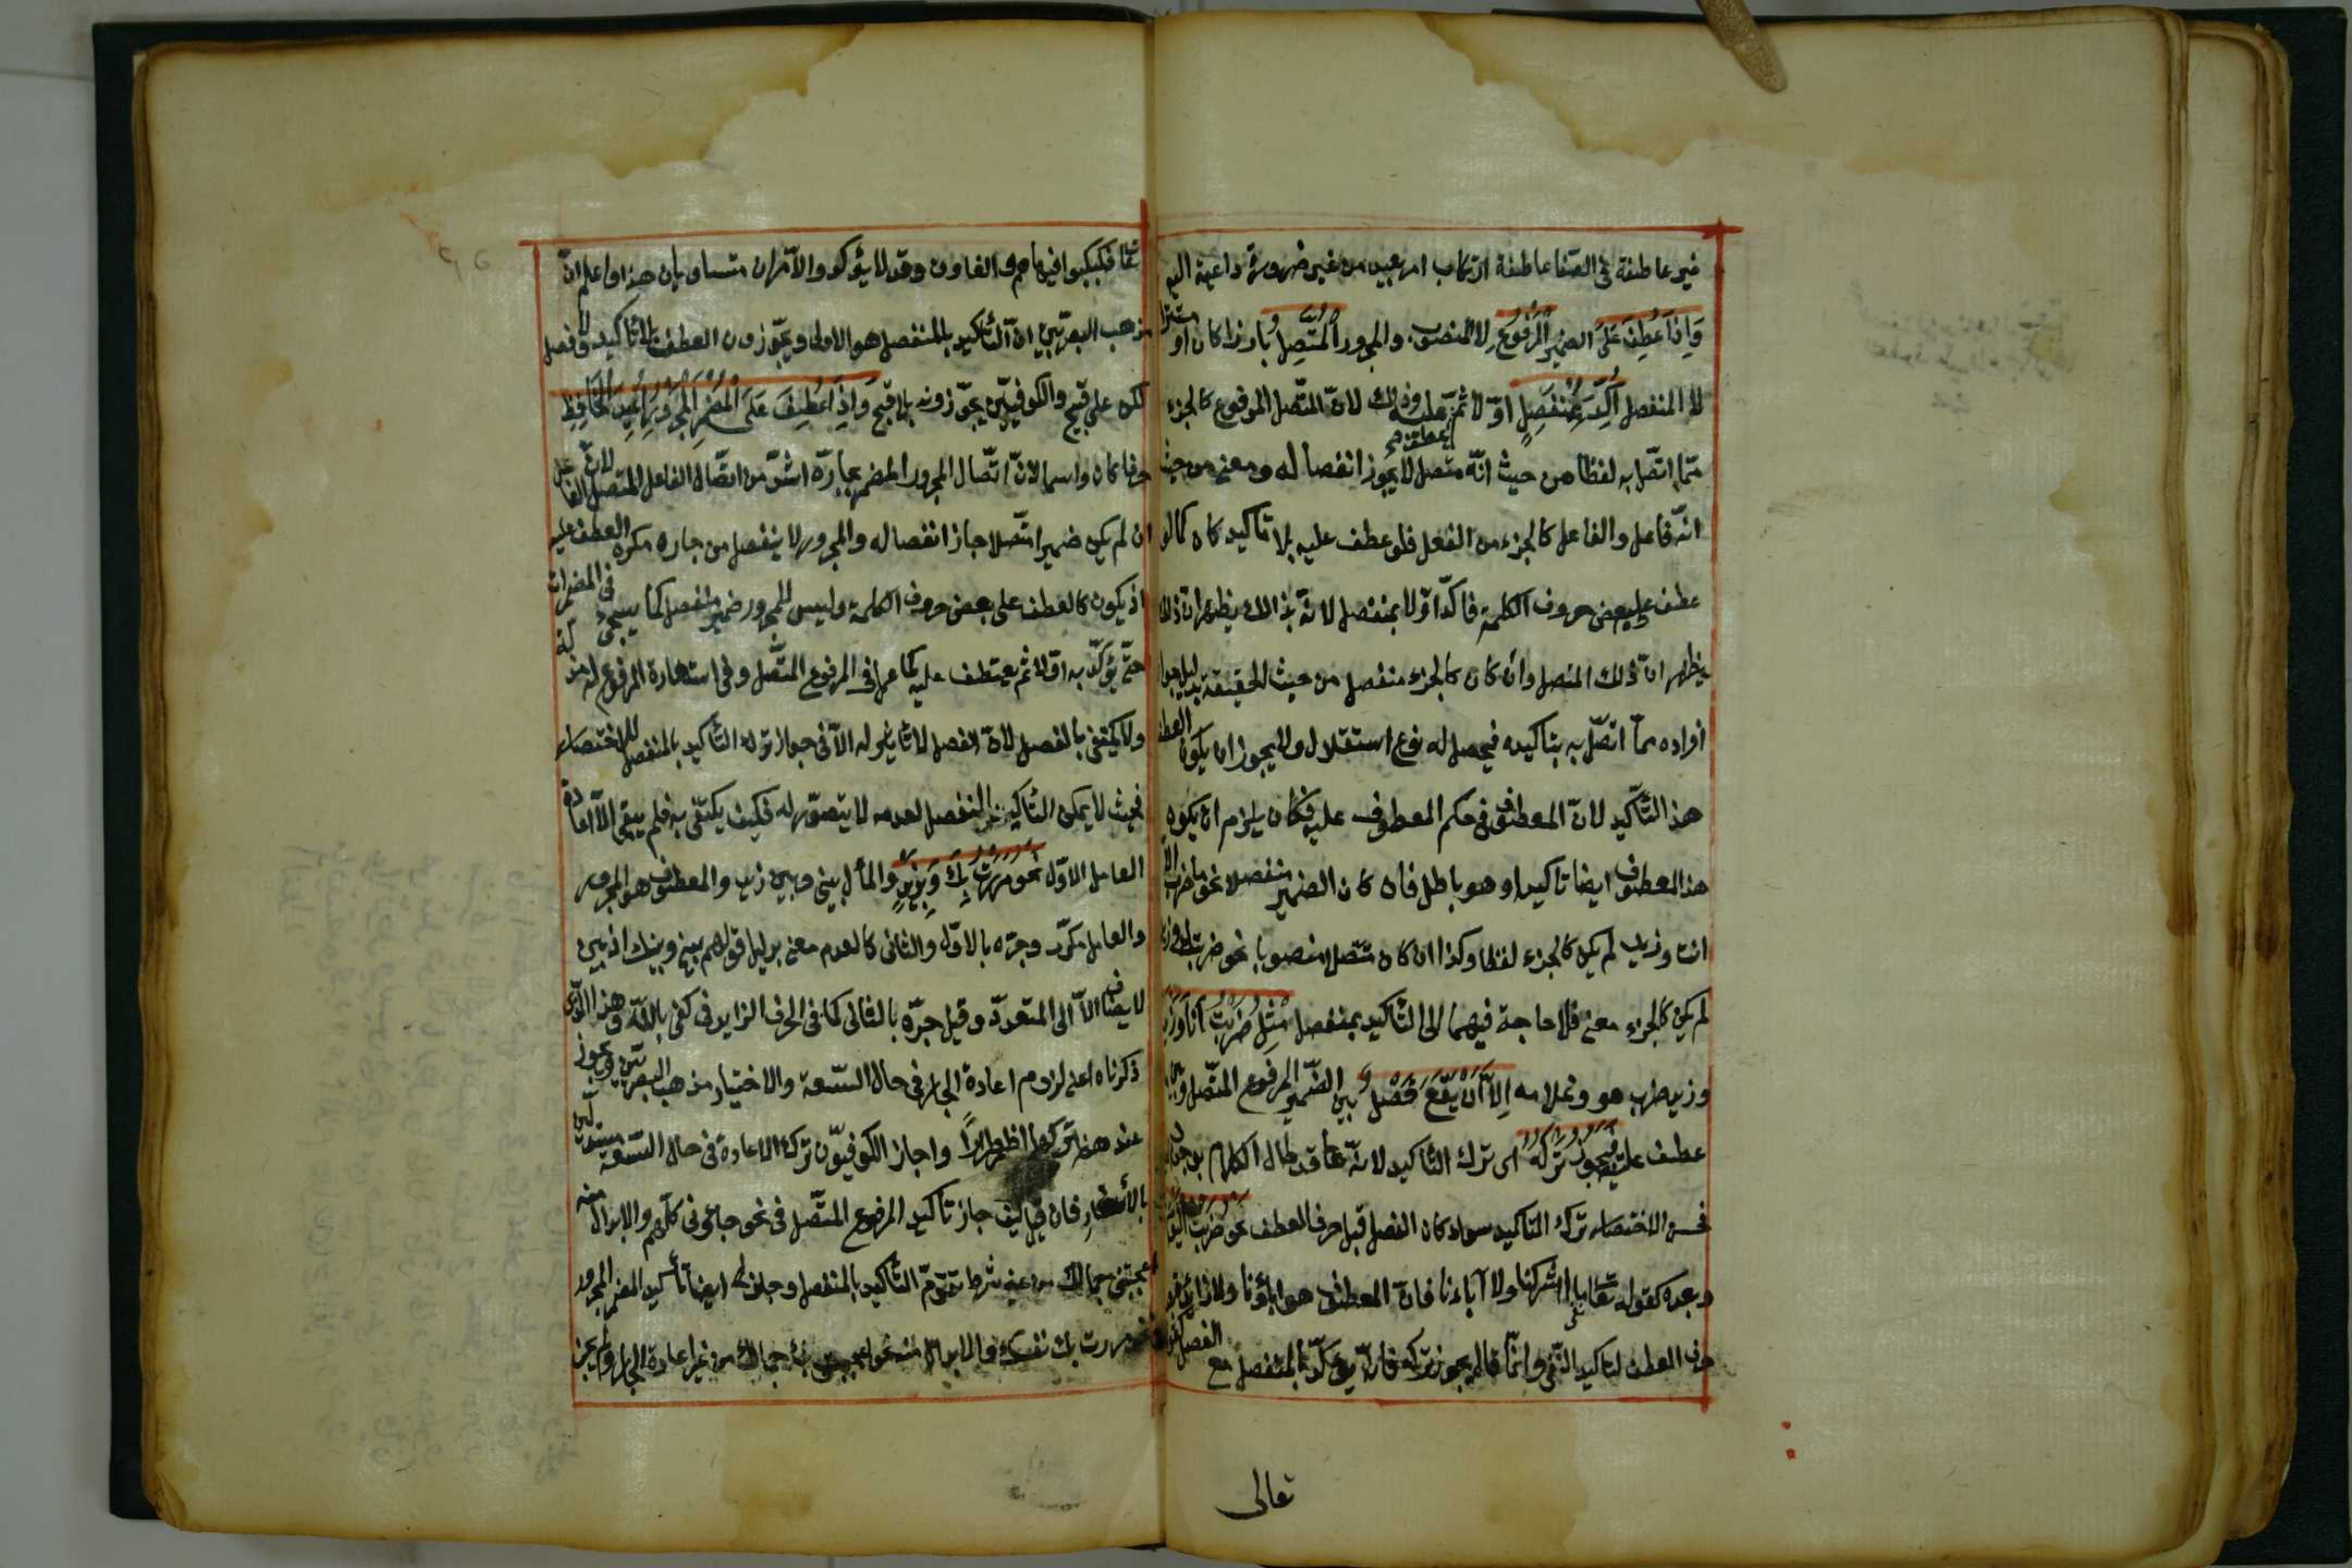 غير عاطفة في الصفا عاطفة ارتكاب امر بعيد من غير ضرورة داعية اليه
وَاِذَا عُطِفَ عَلَى الضمير الْمَرْفُوعِ لا المنصوب والمجرور الْمُتَّصِلِ بارزا كان او مستترا
لا المنفصل اُكِّدَ بِمُنْفَصِلٍ اوّلا ثمّ عطف عليه وذلك لانّ المتّصل المرفوع كالجزء
ممّا اتصّل به لفظا من حيث انّه متصل لا يجوز انفصاله ومعنى من حيث
انّه فاعل والفاعل كالجزء من الفعل فلو عطف عليه بلا تاكيد كان كما لو
عطف على بعض حروف الكلمة فاكّد اوّلا بمنفصل لانّه بذلك يظهر ان ذلك
يظهر انّ ذلك المتصل وان كان كالجزء منفصل من حيث الحقيقة بدليل جواز
افراده ممّا اتصّل به بتاكيده فيحصل له نوع استقلال ولا يجوز ان يكون العطف
هذا التّأكيد لانّ المعطوف في حكم المعطوف عليه فكان يلزم ان يكون
هذا المعطوف ايضا تاكيدا وهو باطل فان كان الضمير منفصلا نحو ما ضرب الا
انت وزيد لم يكن كالجزء لفظا وكذا ان كان متّصلا منصوبا نحو ضربتك وزيدا
لم يكن كالجزء معنى فلا حاجة فيهما الى التّأكيد بمنفصل مِثْلُ ضَرَبْتُ اَنَا وَزَيْدٌ
وزيد ضرب هو وغلامه اِلَّا اَنْ يَقَعَ فَصْلٌ بين الضّمير المرفوع المتّصل وبين ما
عطف عليه فَيَجُوزُ تَرْكُهُ اى ترك التّأكيد لانّه قد طال الكلام بوجود
فحسن الاختصار بترك التاكيد سواء كان الفصل قبل حرف العطف نحو ضَرَبْتُ الْيَوْمَ
وبعده كقوله تعالى ما اشركنا ولا آباءنا فانّ المعطوف هو اباؤنا ولا زائدة بعد
حرف العطف لتاكيد النّفي وانّما قال يجوز تركه فانّه يؤكّد بالمنفصل مع الفصل كقوله
تعالى
تعا فكبكبوا فيها هم والغاون وقد لا يؤكد والامران متساويان هذا واعلم انّ
مذهب البصريّين انّ التّأكيد بالمنفصل هو الاولى ويجّوزون العطف بلا تأكيد ولا فصل
لكن على قبح والكوفيّين يجوّزونه بلا قبح وَاِذَا عُطِفَ عَلَى الْمُضْمَرِ الْمَجْرُورِ اُعِيدَ الْخَافِضُ
حرفا كان واسما لانّ اتّصال المجرور المضمر بجارّه اشدّ من اتصّال الفاعل المتصل لانّ الفاعل
ان لم يكن ضميرا متّصلا جاز انفصاله والمجرور لا ينفصل من جاره فكره العطف عليه
اذ يكون كالعطف على بعض حروف الكلمة وليس للمجرور ضمير منفصل كما سيجئ في المضمرات
حتّى يؤكّد به اوّلا ثم يعطف عليه كما عمل في المرفوع المتّصل وفي استعارة المرفوع له مذلة
ولا يكتفى بالفصل لانّ الفصل لا تاثير له الّا في جواز ترك التّأكيد بالمنفصل للاختصار
فحيث لا يمكن التّأكيد المنفصل لعدمه لا يتصوّر له فكيف يكتفى به فلم يبقى الّا اعادة
العامل الاوّل نحو مَرَرْتُ بِكَ وَبِزَيْدٍ والمال بينى وبين زيد والمعطوف هو المجرور
والعامل مكرّر وجرّه بالاوّل والثانى كالعدم معنى بدليل قولهم بينى وبينك اذ بين
لا يضاف الاّ الى المتعدّد وقيل جرّه بالثانى كما في الحرف الزايد في كفى بالله وهذا الّذى
ذكرناه اعنى لزوم اعادة الجار في حال السّعة والاختيار مذهب البصريّين ويجوز
عندهم تركها اظطرارًا واجاز الكوفيّون ترك الاعادة في حال السّعة مستدلّين
بالأشعار فان قيل كيف جاز تاكيد المرفوع المتّصل في نحو جاؤنى كلّهم والابدال منه
نحو اعجبتنى جمالك من غير شرط تقدّم التّأكيد بالمنفصل وجاز ايضا تأكيد المضمر المجرور
نحو مررت بك نفسك والابدال منه نحو اعجبت بك جمالك من غير اعادة الجار ولم يجز